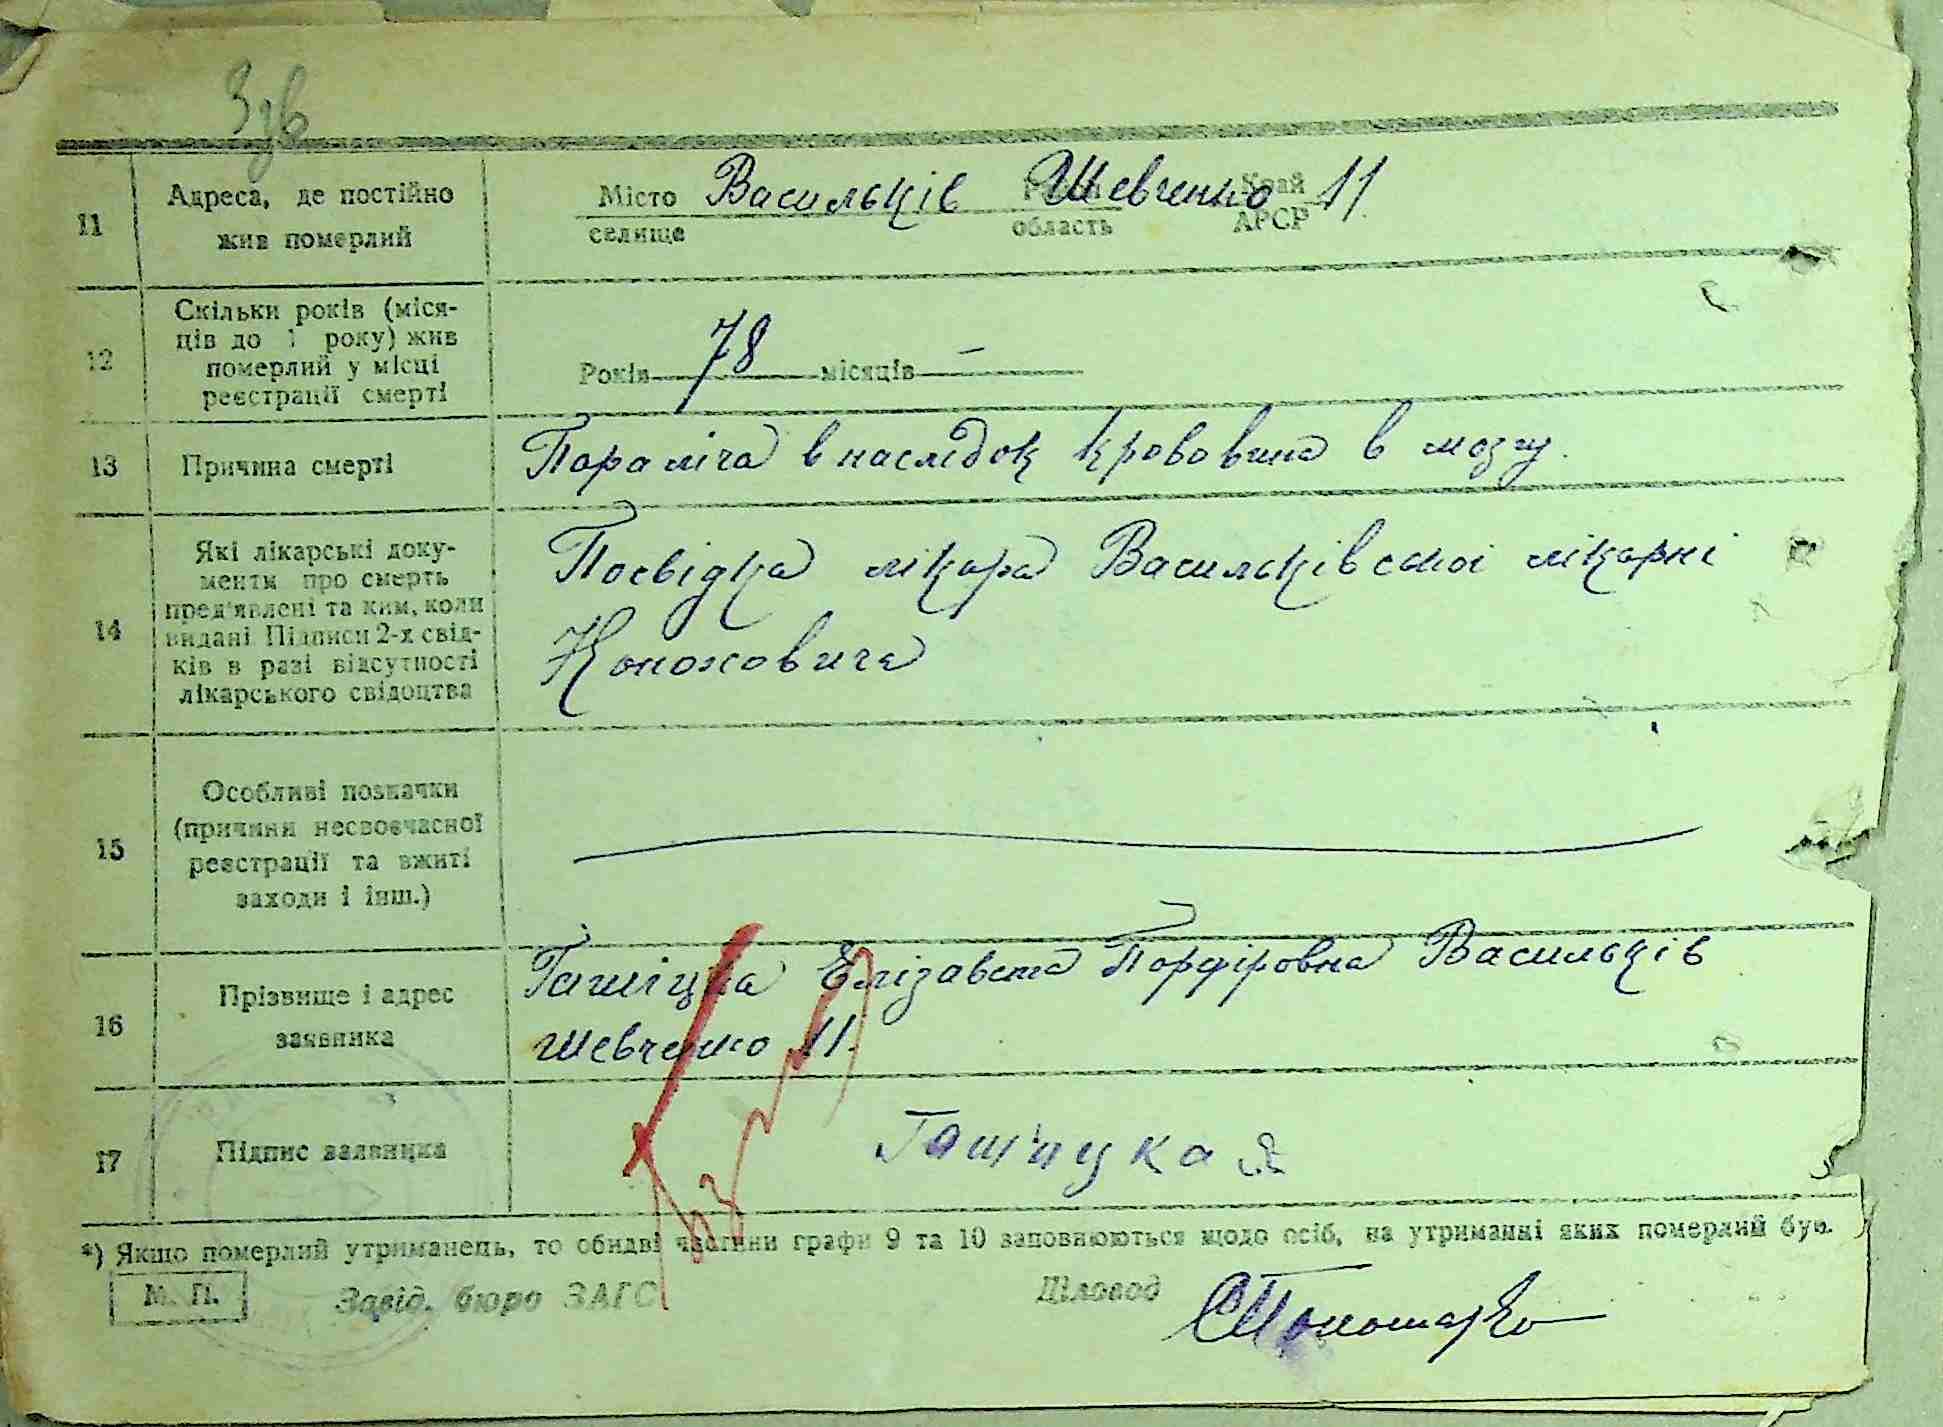 Ззв
11 Адреса, де постійно жив померлий
Місто Васильків Шевченко 11
селище область Край АРСР
12 Скільки років (міся-
ців до 1 року) жив
померлий у місці
реєстрації смерті
Років 78 місяців —
13 Причина смерті
Параліча внаслідок крововина в мозгу.
14 Які лікарські доку-
менти про смерть
пред'явлені та ким, коли
видані. Підписи 2-х свід-
ків в разі відсутності
лікарського свідоцтва
Посвідка лікара Васильківської лікарні
Кононовича
15 Особливі позначки
(причини несвоєчасної
реєстрації та вжиті
заходи і інш.)
16 Прізвище і адрес
заявника
Гашіцка Елізавета Порфіровна Васильків
Шевченко 11.
17 Підпис заявника
Гашицка
*) Якщо померлий утриманець, то обидві частини графи 9 та 10 заповнюються щодо осіб, на утриманні яких померлий був.
М. П. Завід. бюро ЗАГС Діловод